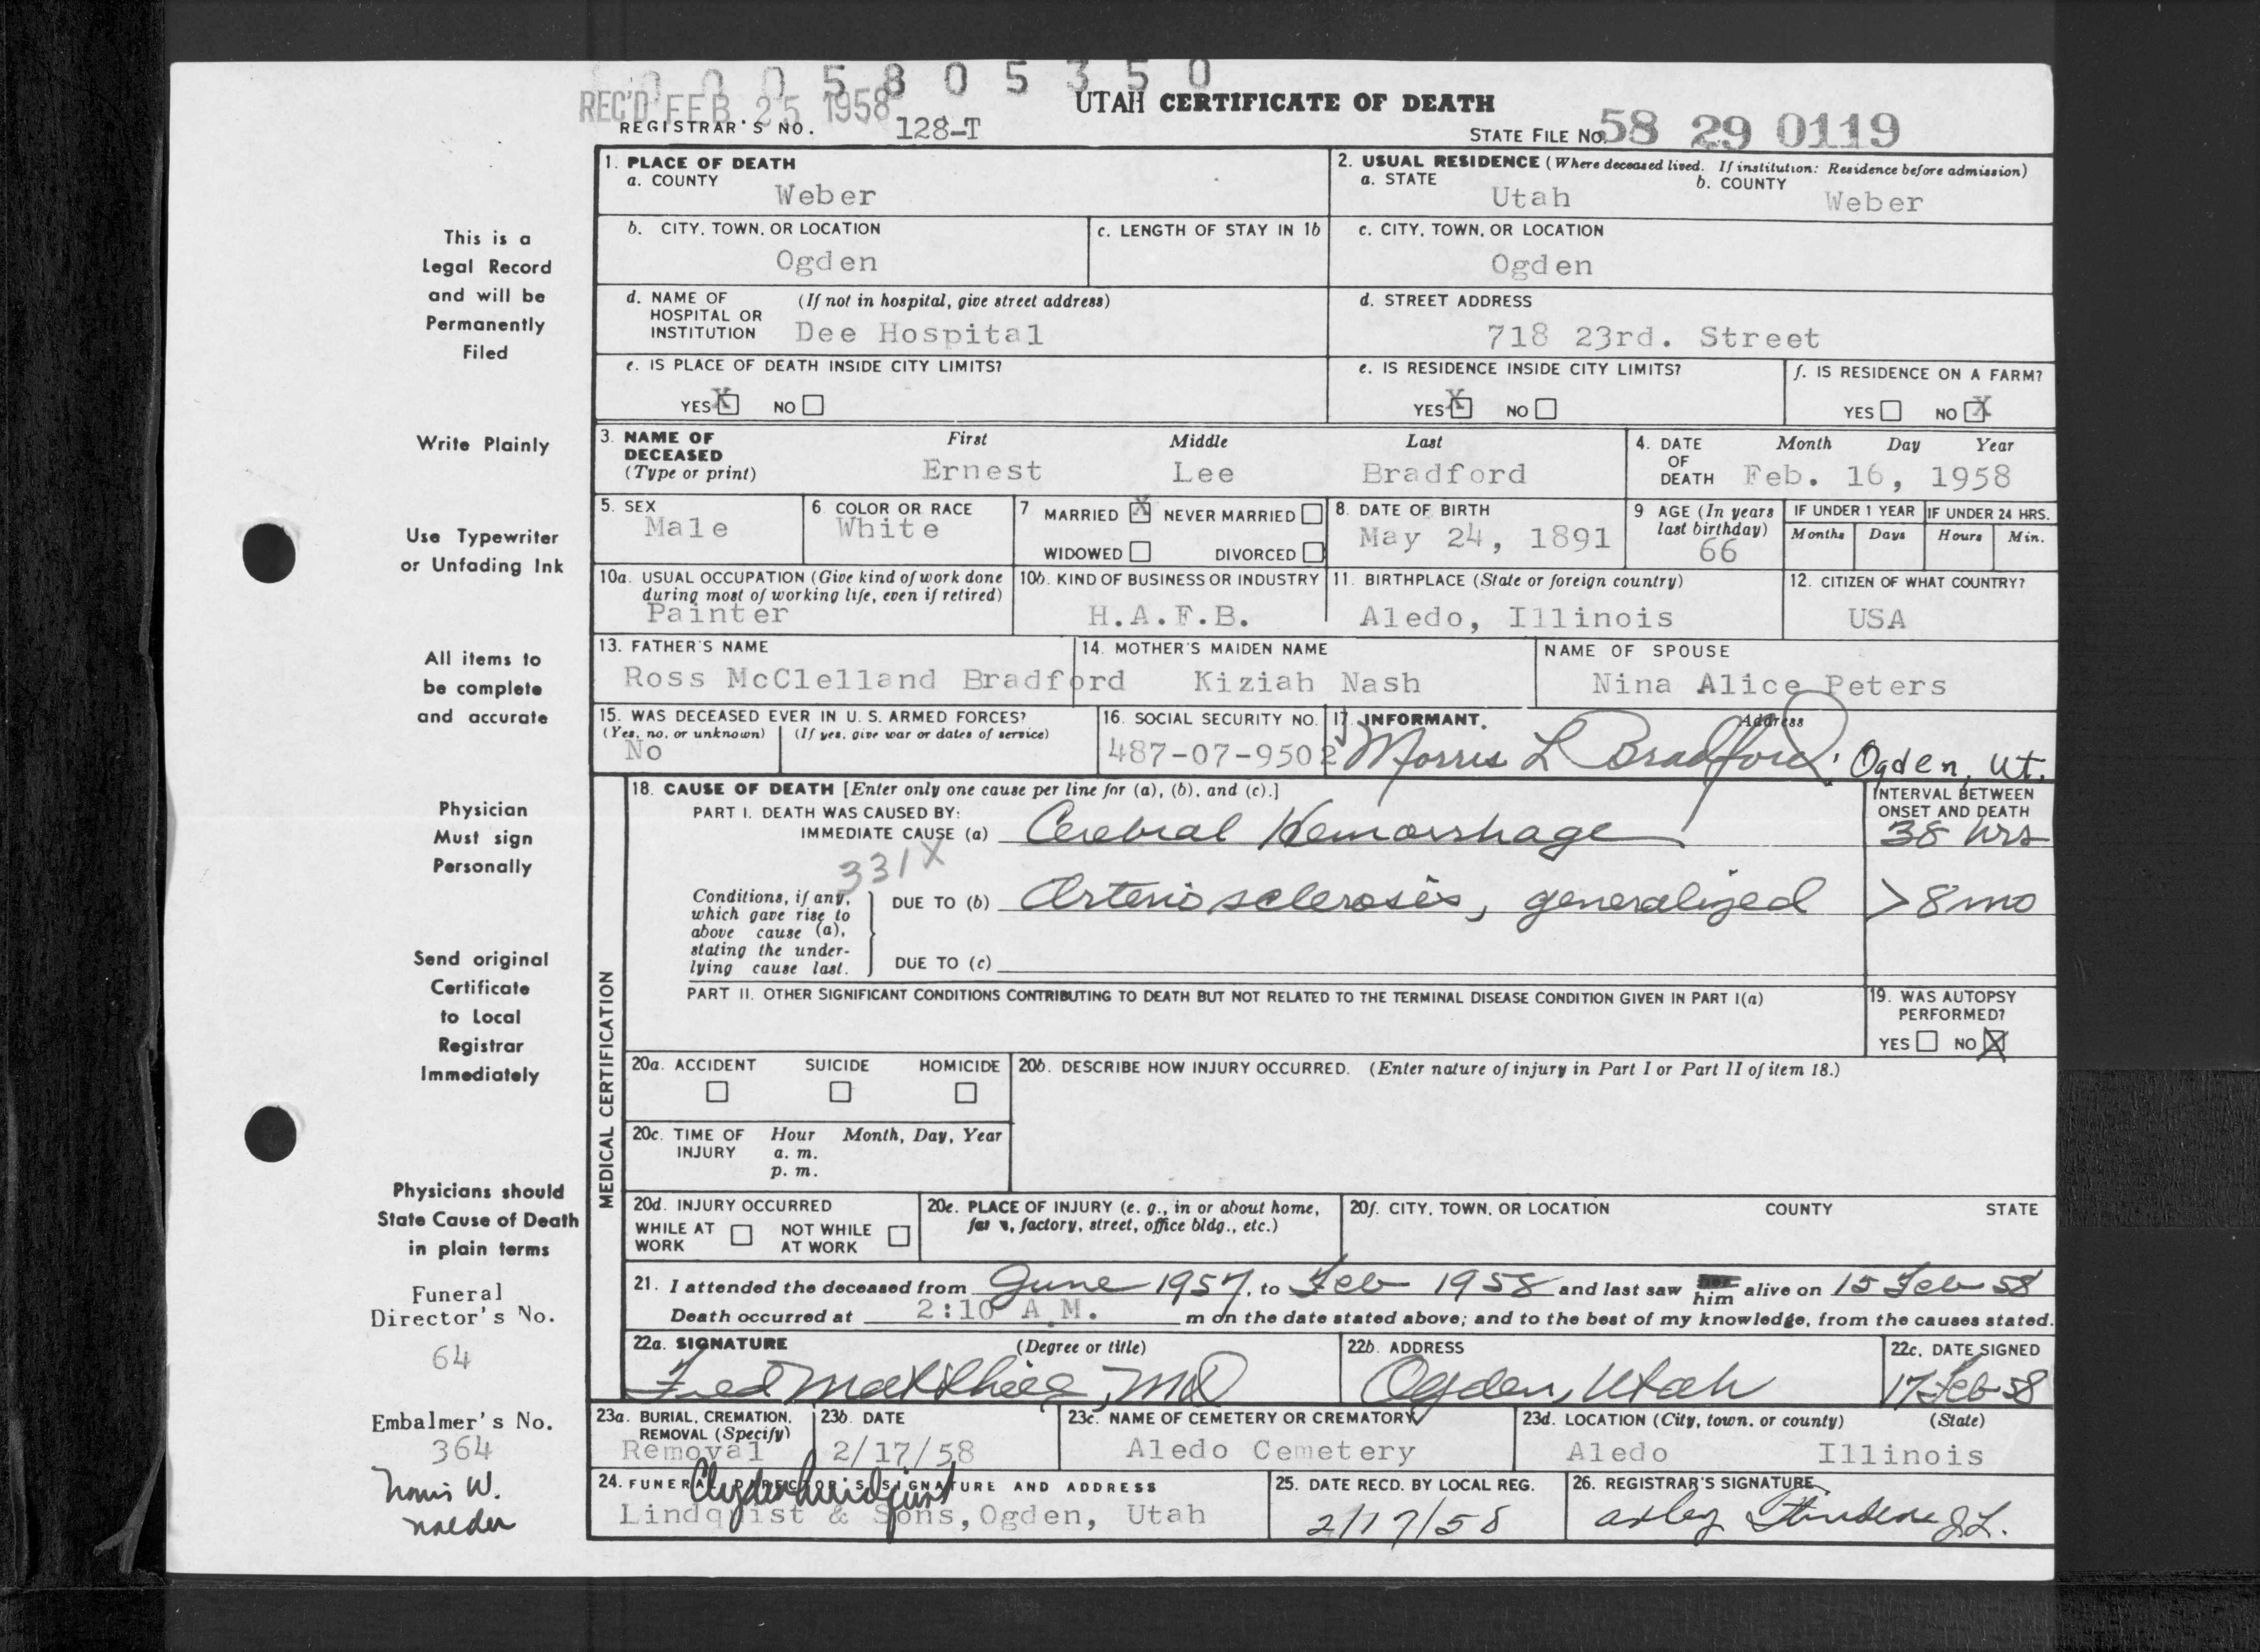 0 0 0 5 8 0 5 3 5 0
REC'D FEB 25 1958
UTAH CERTIFICATE OF DEATH
REGISTRAR'S NO. 128-T
STATE FILE NO. 58 29 0119
This is a
Legal Record
and will be
Permanently
Filed
Write Plainly
Use Typewriter
or Unfading Ink
All items to
be complete
and accurate
Physician
Must sign
Personally
Send original
Certificate
to Local
Registrar
Immediately
Physicians should
State Cause of Death
in plain terms
Funeral
Director's No.
64
Embalmer's No.
364
W.
1. PLACE OF DEATH
a. COUNTY
Weber
2. USUAL RESIDENCE (Where deceased lived. If institution: Residence before admission)
a. STATE
Utah
b. COUNTY
Weber
b. CITY, TOWN, OR LOCATION
Ogden
c. LENGTH OF STAY IN 1b
c. CITY, TOWN, OR LOCATION
Ogden
d. NAME OF HOSPITAL OR INSTITUTION
(If not in hospital, give street address)
Dee Hospital
d. STREET ADDRESS
718 23rd. Street
e. IS PLACE OF DEATH INSIDE CITY LIMITS?
YES X NO
e. IS RESIDENCE INSIDE CITY LIMITS?
YES X NO
f. IS RESIDENCE ON A FARM?
YES NO X
3. NAME OF DECEASED (Type or print)
First Middle Last
Ernest Lee Bradford
4. DATE OF DEATH
Month Day Year
Feb. 16, 1958
5. SEX
Male
6 COLOR OR RACE
White
7 MARRIED X NEVER MARRIED
WIDOWED DIVORCED
8. DATE OF BIRTH
May 24, 1891
9 AGE (In years last birthday)
66
IF UNDER 1 YEAR
Months Days
IF UNDER 24 HRS.
Hours Min.
10a. USUAL OCCUPATION (Give kind of work done
during most of working life, even if retired)
Painter
10b. KIND OF BUSINESS OR INDUSTRY
H.A.F.B.
11. BIRTHPLACE (State or foreign country)
Aledo, Illinois
12. CITIZEN OF WHAT COUNTRY?
USA
13. FATHER'S NAME
Ross McClelland Bradford
14. MOTHER'S MAIDEN NAME
Kiziah Nash
NAME OF SPOUSE
Nina Alice Peters
15. WAS DECEASED EVER IN U. S. ARMED FORCES?
(Yes, no, or unknown) (If yes, give war or dates of service)
No
16. SOCIAL SECURITY NO.
487-07-9502
17. INFORMANT. Address
Morris L Bradford. Ogden, Ut.
MEDICAL CERTIFICATION
18. CAUSE OF DEATH [Enter only one cause per line for (a), (b), and (c).]
INTERVAL BETWEEN
ONSET AND DEATH
PART I. DEATH WAS CAUSED BY:
IMMEDIATE CAUSE (a) Cerebral Hemorrhage 38 hrs
331X
Conditions, if any,
which gave rise to
above cause (a),
stating the under-
lying cause last.
DUE TO (b) Arteriosclerosis, generalized >8 mo
DUE TO (c)
PART II. OTHER SIGNIFICANT CONDITIONS CONTRIBUTING TO DEATH BUT NOT RELATED TO THE TERMINAL DISEASE CONDITION GIVEN IN PART I(a)
19. WAS AUTOPSY
PERFORMED?
YES NO X
20a. ACCIDENT SUICIDE HOMICIDE
20b. DESCRIBE HOW INJURY OCCURRED. (Enter nature of injury in Part I or Part II of item 18.)
20c. TIME OF INJURY
Hour Month, Day, Year
a. m.
p. m.
20d. INJURY OCCURRED
WHILE AT WORK NOT WHILE AT WORK
20e. PLACE OF INJURY (e. g., in or about home,
farm, factory, street, office bldg., etc.)
20f. CITY, TOWN, OR LOCATION COUNTY STATE
21. I attended the deceased from June 1957, to Feb 1958 and last saw him alive on 15 Feb 58
Death occurred at 2:10 A.M. m on the date stated above; and to the best of my knowledge, from the causes stated.
22a. SIGNATURE (Degree or title)
Fred Matthies, MD
22b. ADDRESS
Ogden, Utah
22c. DATE SIGNED
17 Feb 58
23a. BURIAL, CREMATION, REMOVAL (Specify)
Removal
23b. DATE
2/17/58
23c. NAME OF CEMETERY OR CREMATORY
Aledo Cemetery
23d. LOCATION (City, town, or county) (State)
Aledo Illinois
24. FUNERAL DIRECTOR'S SIGNATURE AND ADDRESS
Clyde Lindquist
Lindquist & Sons, Ogden, Utah
25. DATE RECD. BY LOCAL REG.
2/17/58
26. REGISTRAR'S SIGNATURE